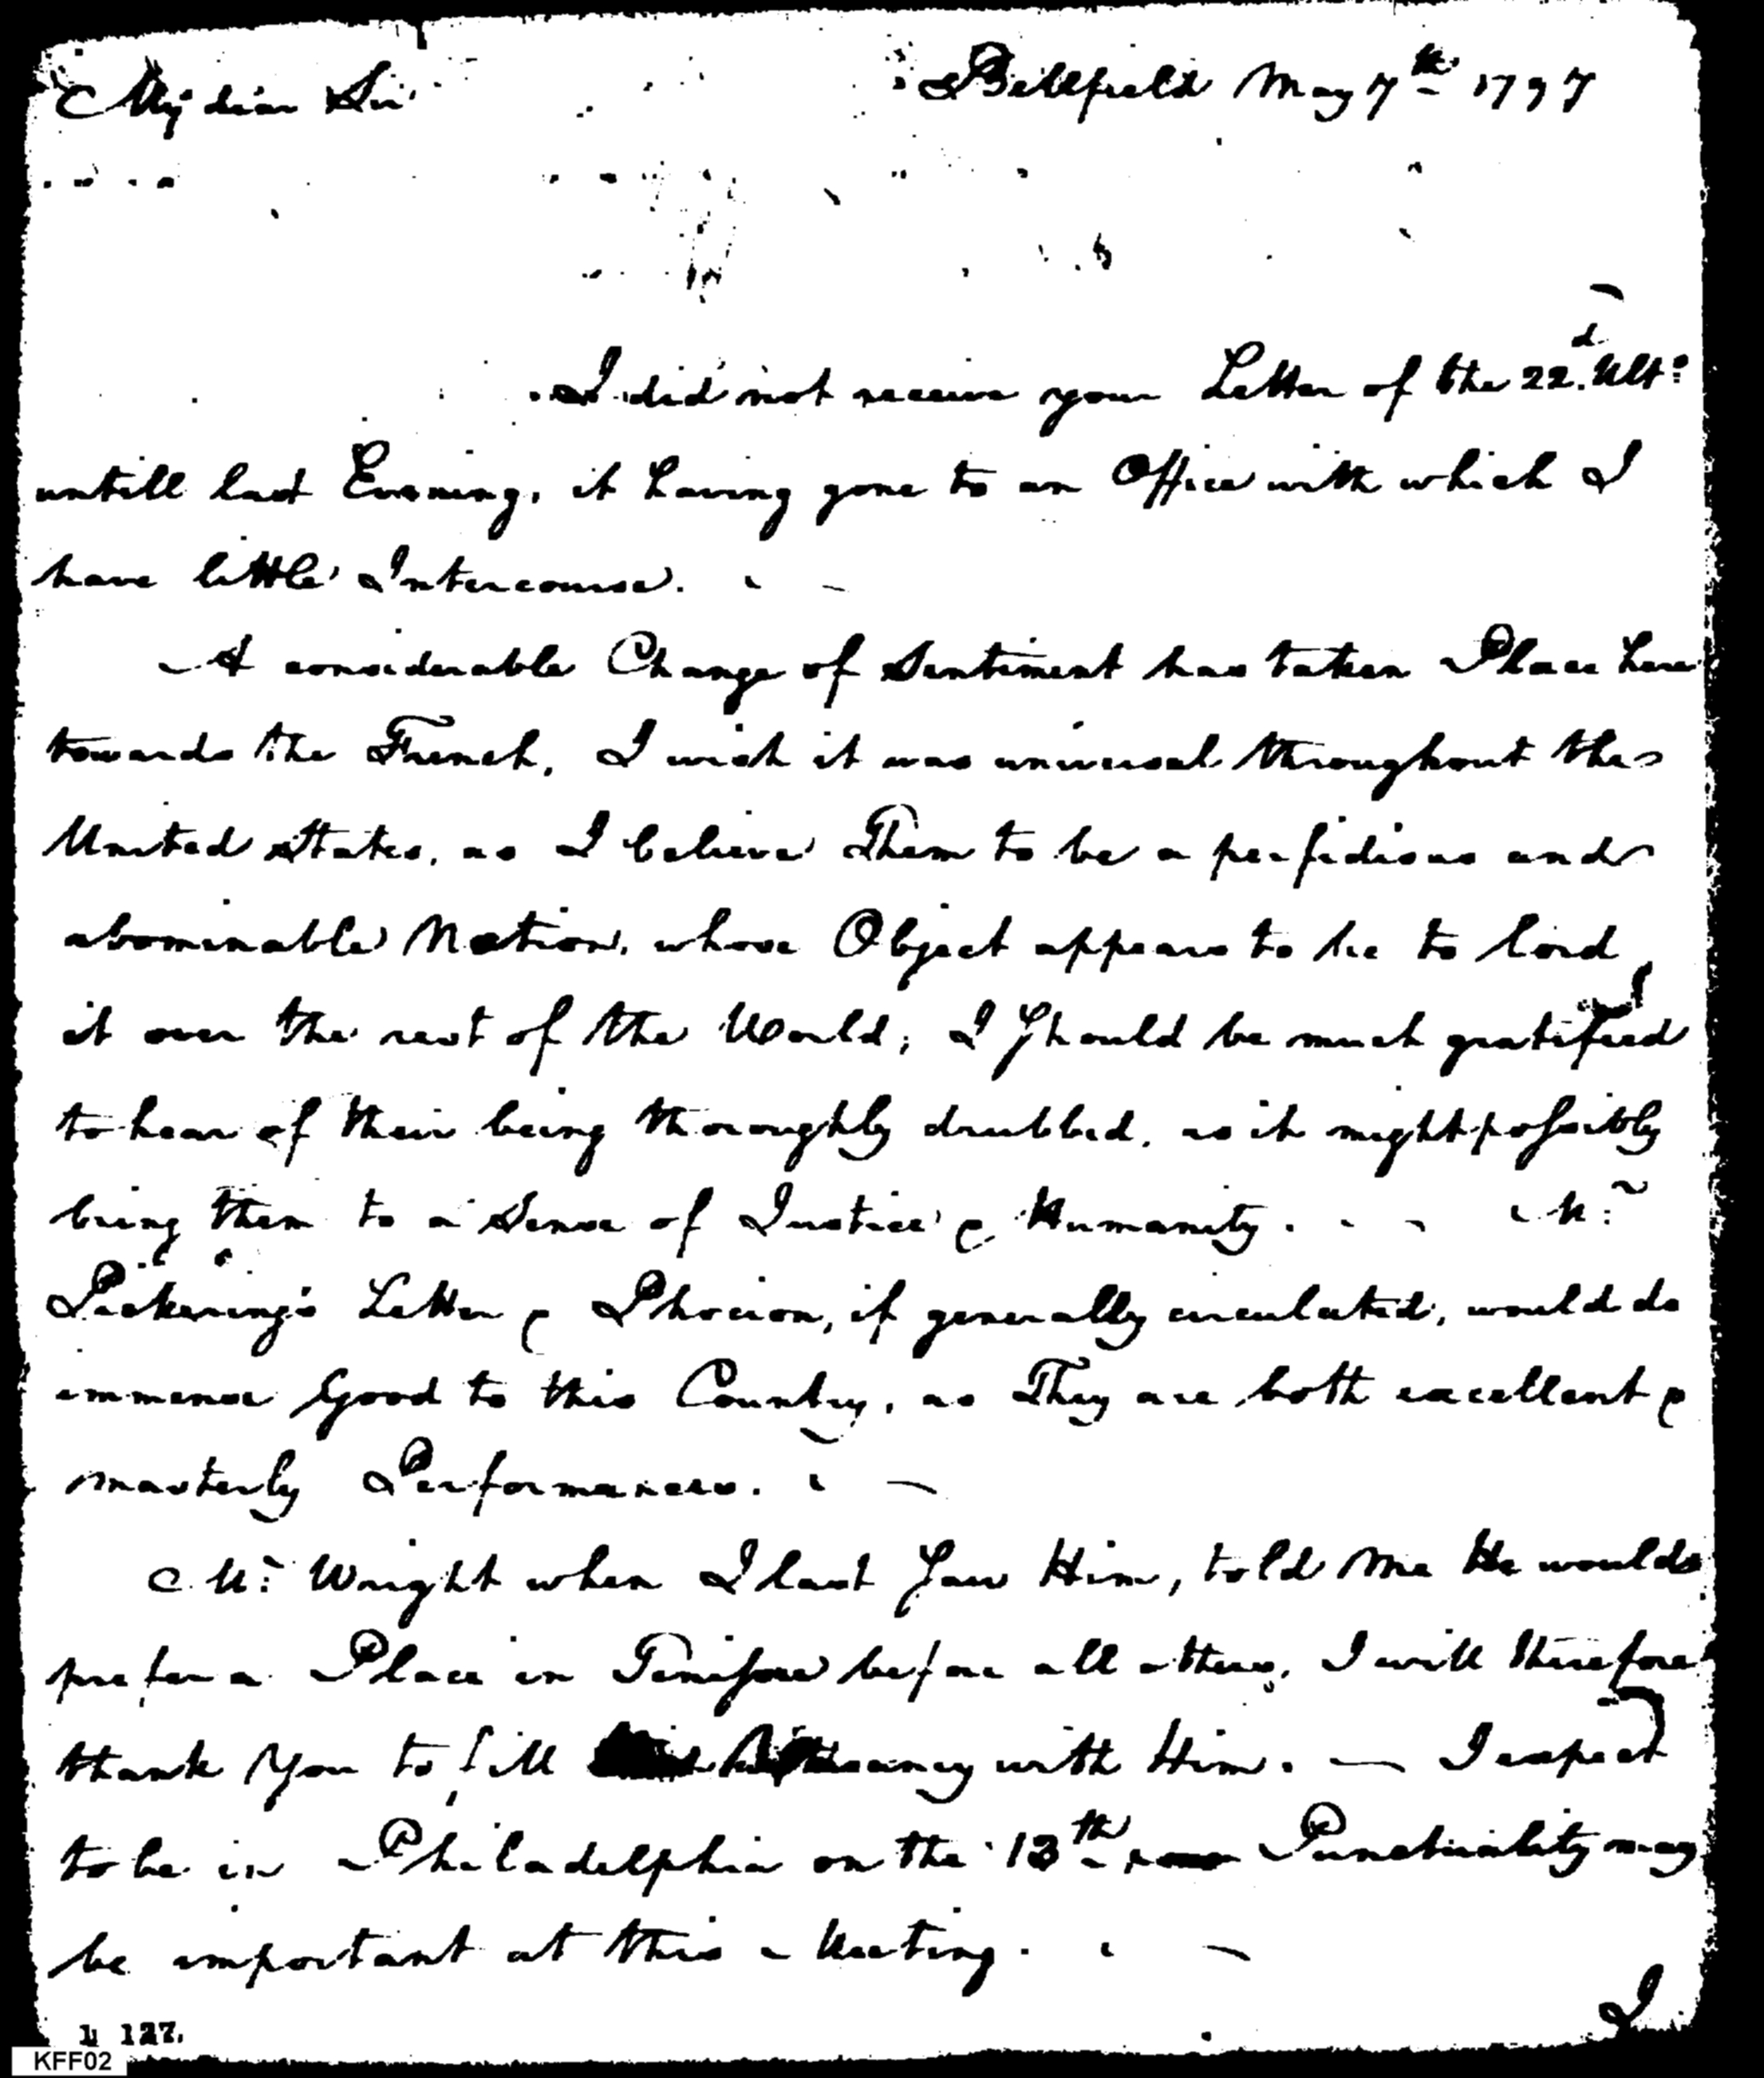 My dear Sir Bellfield May 7th 1797
I did not receive your Letter of the 22.d Ulto
untill last Evening, it having gone to an Office with which I
have little Intercourse. -
A considerable Change of Sentiment has taken Place here
towards the French, I wish it was universal throughout the
United States, as I believe Them to be a perfidious and
abominable Nation, whose Object appears to be to lord
it over the rest of the World; I Should be much gratified
to hear of their being thoroughly drubbed, as it might possibly
bring them to a Sense of Justice & Humanity. - - Mr
Pickering's Letter & Phocion, if generally circulated, would do
immense Good to this Country, as They are both excellent &
masterly Performances. -
Mr Wright when I last Saw Him, told me He would
prefer a Place in Tenisee before all others, I will therefore
thank You to fill with Him. — I expect
to be in Philadelphia on the 13th Punctuality may
be important at this Meeting. -
I
127.
KFF02